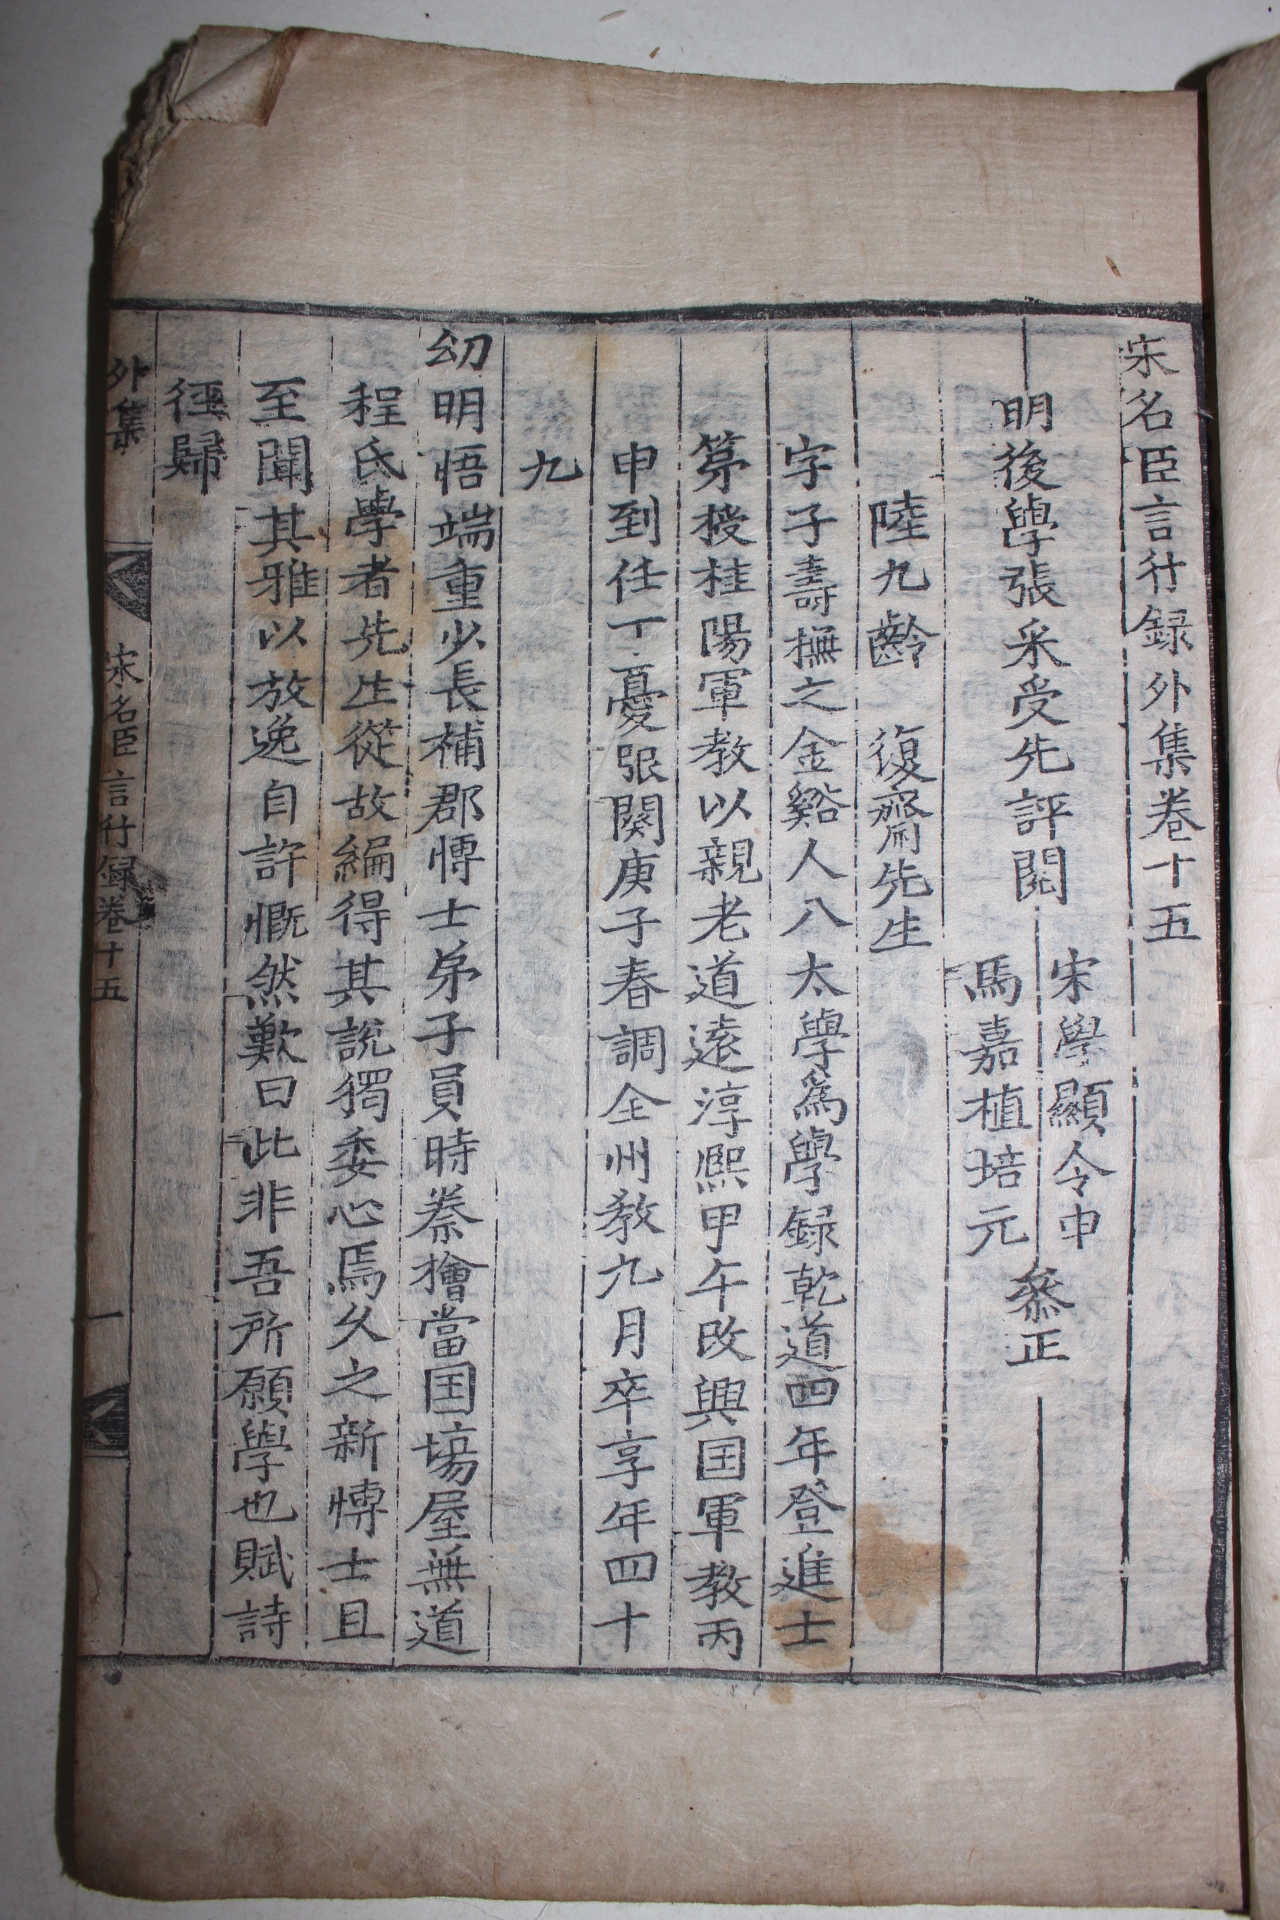 宋名臣言行録外集卷十五
明後學張采受先評閱
宋學顯令申
馬嘉植培元
叅正
陸九齡　復齋先生
字子壽撫之金谿人八太學爲學録乾道四年登進士
苐授桂陽軍教以親老道遠淳熙甲午改興国軍教丙
申到任丁憂服闋庚子春調全州教九月卒享年四十
九
幼明悟端重少長補郡博士弟子員時秦檜當国場屋無道
程氏學者先生從故編得其說獨委心焉久之新博士且
至聞其雅以放逸自許慨然歎曰此非吾所願學也賦詩
徑歸
外集
宋名臣言行録卷十五
一